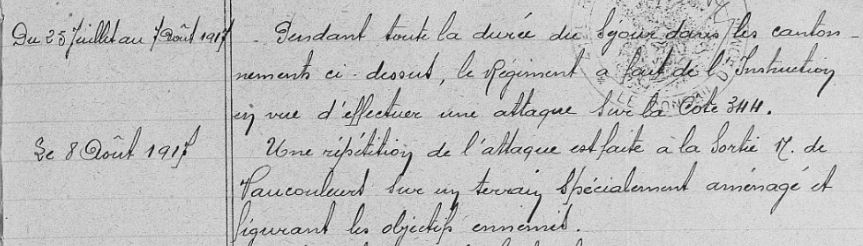 Du 25 Juillet au 7 Août 1917 - Pendant toute la durée du Séjour dans les canton-
nements ci-dessus, le Régiment a fait de l'Instruction
en vue d'effectuer une attaque sur la Cote 344.
Le 8 Août 1917 Une répétition de l'attaque est faite à la Sortie N. de
Vaucouleurs sur un terrain spécialement aménagé et
figurant les objectifs ennemis.